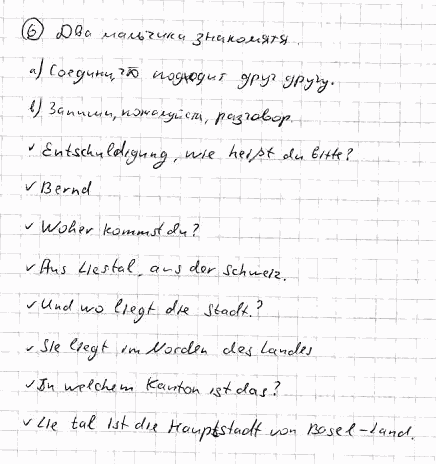 ⑥ Два мальчика знакомятя.
а) Соедини, что подходит друг другу.
в) Запиши, пожалуйста, разговор.
✓ Entschuldigung, wie heißt du bitte?
✓ Bernd
✓ Woher kommst du?
✓ Aus Liestal, aus der Schweiz.
✓ Und wo liegt die Stadt?
✓ Sie liegt im Norden des Landes
✓ In welchem Kanton ist das?
✓ Lie tal ist die Hauptstadt von Basel-Land.